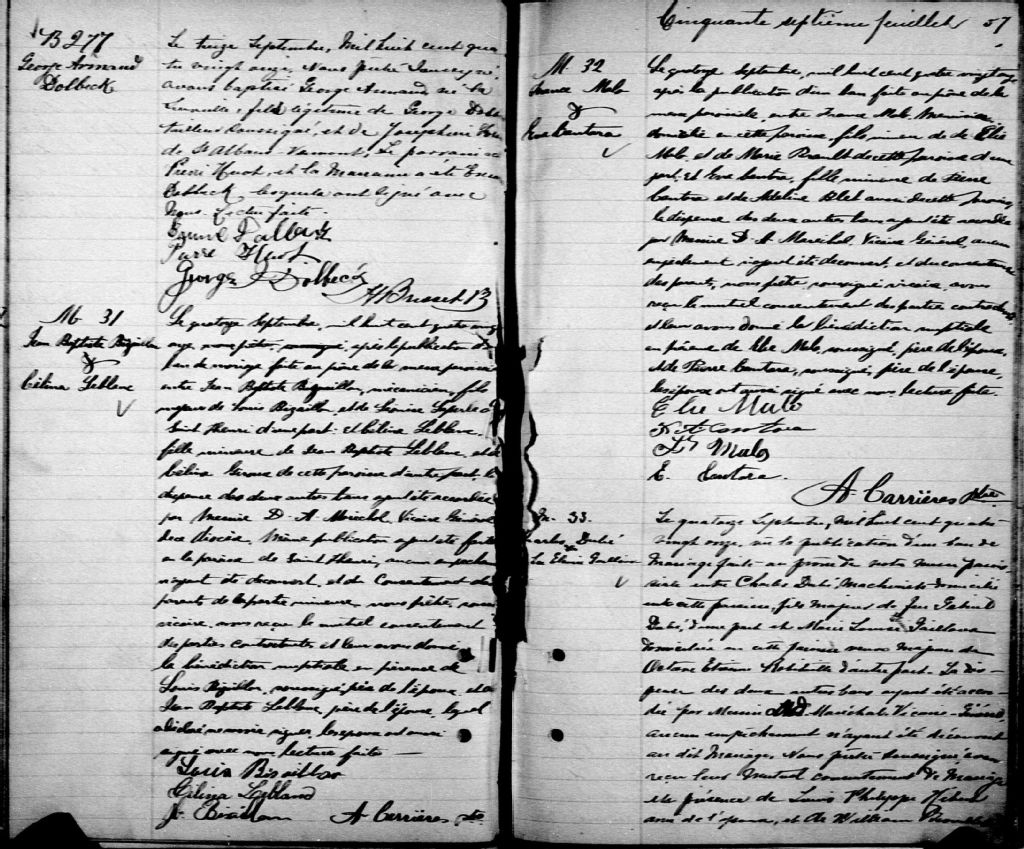 B 277
George Armand
Dolbeck
Le treize Septembre, Mil huit cent qua
tre vingt onze, Nous Prêtre Soussigné
avons baptisé George Armand né la
fils légitime de George Dolbeck
tailleur soussigné, et de Josephine
de St Albans Vermont. Le parrain a été
Pierre Huot, et la Marraine a été
Dolbeck lesquels ont signé avec
Nous. Lecture faite.
Dolbeck
Pierre Huot
George Dolbeck
H Brisset
M 31
Jean Baptiste Bizaillon
&
Célina Leblanc
Le quatorze Septembre, mil huit cent quatre vingt
onze, nous prêtre, soussigné, après la publication d'un
ban de mariage faite au prône de la messe paroissiale
entre Jean Baptiste Bizaillon, mécanicien, fils
majeur de Louis Bizaillon, et de
Saint Henri d'une part, et Célina Leblanc,
fille mineure de Jean Baptiste Leblanc, et de
Célina de cette paroisse d'autre part, la
dispense des deux autres bans ayant été accordée
par Messire D. A. Maréchal, Vicaire Général
du Diocèse, même publication ayant été faite
en la paroisse de Saint Henri, aucun empêchement
n'ayant été découvert, et du Consentement des
parents de la partie mineure, nous prêtre, soussigné
vicaire, avons reçu le mutuel consentement
des parties contractantes et leur avons donné
la bénédiction nuptiale en présence de
Louis Bizaillon, soussigné, père de l'époux et de
Jean Baptiste Leblanc, père de l'épouse, lequel
a déclaré ne savoir signer, les époux ont aussi
signé avec nous, lecture faite
Louis Bisaillon
Célina Leblanc
J. Bisaillon A Carrières, ptre
Cinquante septième feuillet 57
M 32
Malo
&
Eva Cantara
Le quatorze Septembre, mil huit cent quatre vingt onze
après la publication d'un ban faite au prône de la
messe paroissiale, entre Malo, Menuisier,
domicilié en cette paroisse, fils mineur de Elie
Malo, et de Marie de cette paroisse d'une
part, et Eva Cantara, fille mineure de Pierre
Cantara et de Adeline aussi de cette paroisse,
la dispense des deux autres bans ayant été accordée
par Messire D. A. Maréchal, Vicaire Général aucun
empêchement n'ayant été découvert, et du consentement
des parents, nous prêtre, soussigné vicaire, avons
reçu le mutuel consentement des parties contractantes
et leur avons donné la bénédiction nuptiale
en présence de Elie Malo, soussigné, père de l'époux,
et de Pierre Cantara, soussigné, père de l'épouse,
les époux ont aussi signé avec nous. lecture faite.
Elie Malo
Cantara
Malo
E. Cantara.
A. Carrières ptre
M. 33.
Charles Dubé
&
Le quatorze Septembre, Mil huit cent quatre
vingt onze, vu la publication d'un ban de
Mariage faite au prône de notre Messe parois-
siale entre Charles Dubé, Machiniste domicilié
en cette paroisse, fils Majeur de
Dubé, d'une part et Marie Louise
domiciliée en cette paroisse veuve majeure de
Octave Etienne d'autre part. La dis-
pense des deux autres bans ayant été accor-
dée par Messire Maréchal Vicaire Général
aucun empêchement n'ayant été découvert
au dit Mariage. Nous prêtre soussigné, avons
reçu leur Mutuel consentement de Mariage
en présence de Louis Philippe
ami de l'époux, et de William